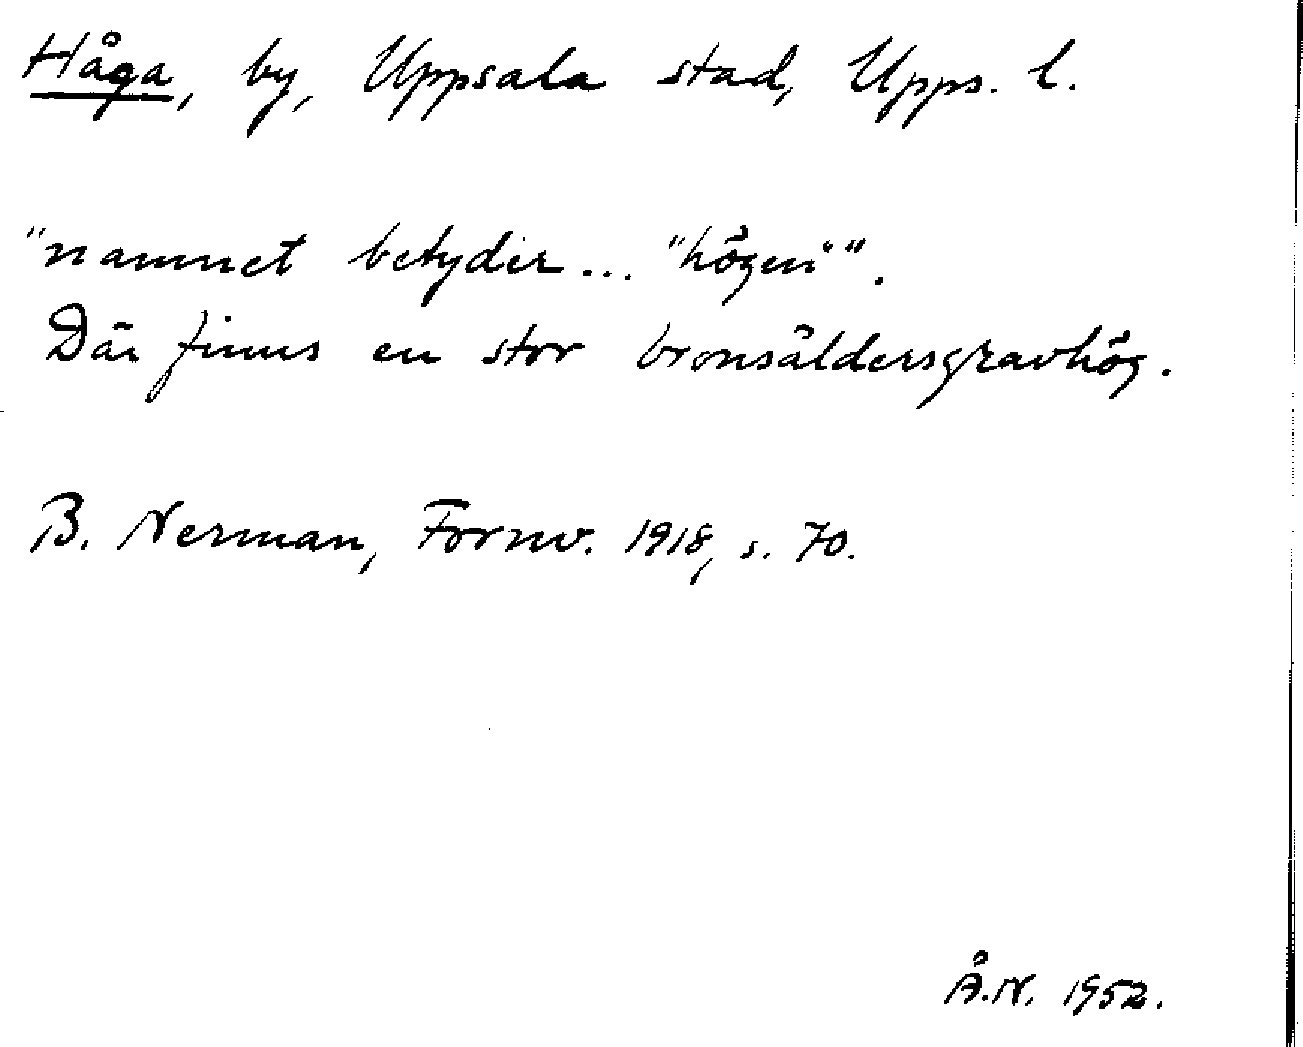 Håga, by, Uppsala stad, Upps. l.
"namnet betyder... "högen"".
Där finns en stor bronsåldersgravhög.
B. Nerman, Fornv. 1918, s. 70.
Å.N. 1952.